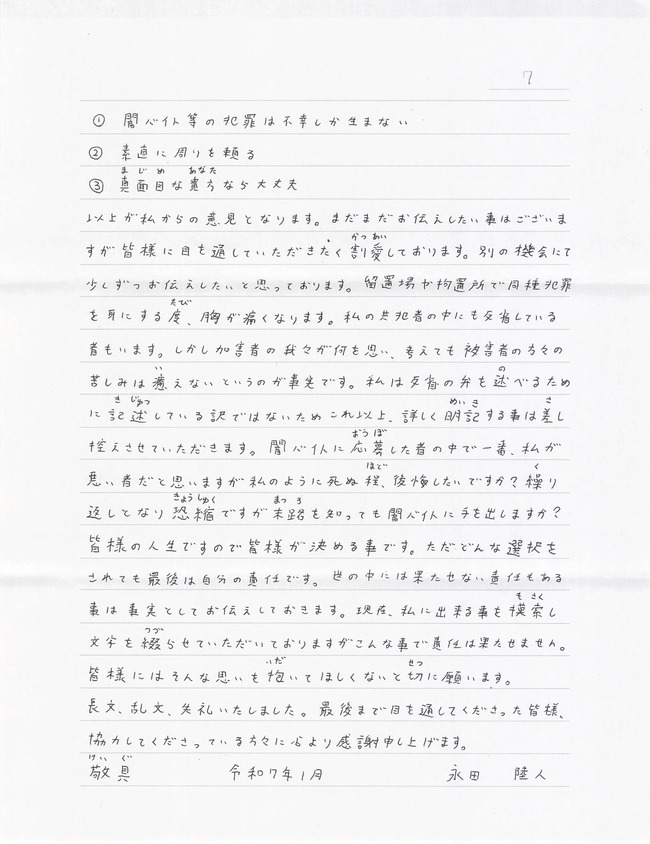 7
① 闇バイト等の犯罪は不幸しか生まない
② 素直に周りを頼る
まじめ あなた
③ 真面目な貴方なら大丈夫
以上が私からの意見となります。まだまだお伝えしたい事はございま
かつあい
すが皆様に目を通していただきたく割愛しております。別の機会にて
少しずつお伝えしたいと思っております。留置場や拘置所で同種犯罪
たび
を耳にする度、胸が痛くなります。私の共犯者の中にも反省している
者もいます。しかし加害者の我々が何を思い、考えても被害者の方々の
い の
苦しみは癒えないというのが事実です。私は反省の弁を述べるため
きじゅつ めいき さ
に記述している訳ではないためこれ以上、詳しく明記する事は差し
おうぼ
控えさせていただきます。闇バイトに応募した者の中で一番、私が
ほど く
悪い者だと思いますが私のように死ぬ程、後悔したいですか?繰り
きょうしゅく まつろ
返しとなり恐縮ですが末路を知っても闇バイトに手を出しますか?
皆様の人生ですので皆様が決める事です。ただどんな選択を
されても最後は自分の責任です。世の中には果たせない責任もある
もさく
事は事実としてお伝えしておきます。現在、私に出来る事を模索し
つづ
文字を綴らせていただいておりますがこんな事で責任は果たせません。
いだ せつ
皆様にはそんな思いを抱いてほしくないと切に願います。
長文、乱文、失礼いたしました。最後まで目を通してくださった皆様、
協力してくださっている方々に心より感謝申し上げます。
けいぐ
敬具 令和7年1月 永田 陸人